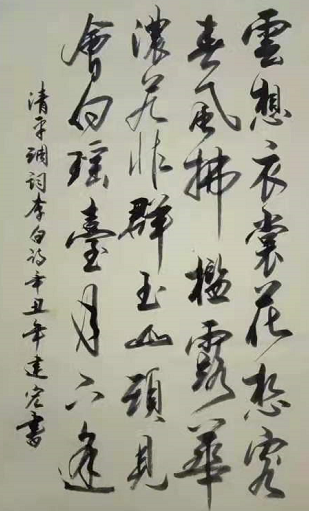 雲想衣裳花想容
春風拂檻露華
濃若非群玉山頭見
會向瑤臺月下逢
清平調詞李白詩辛丑年建書